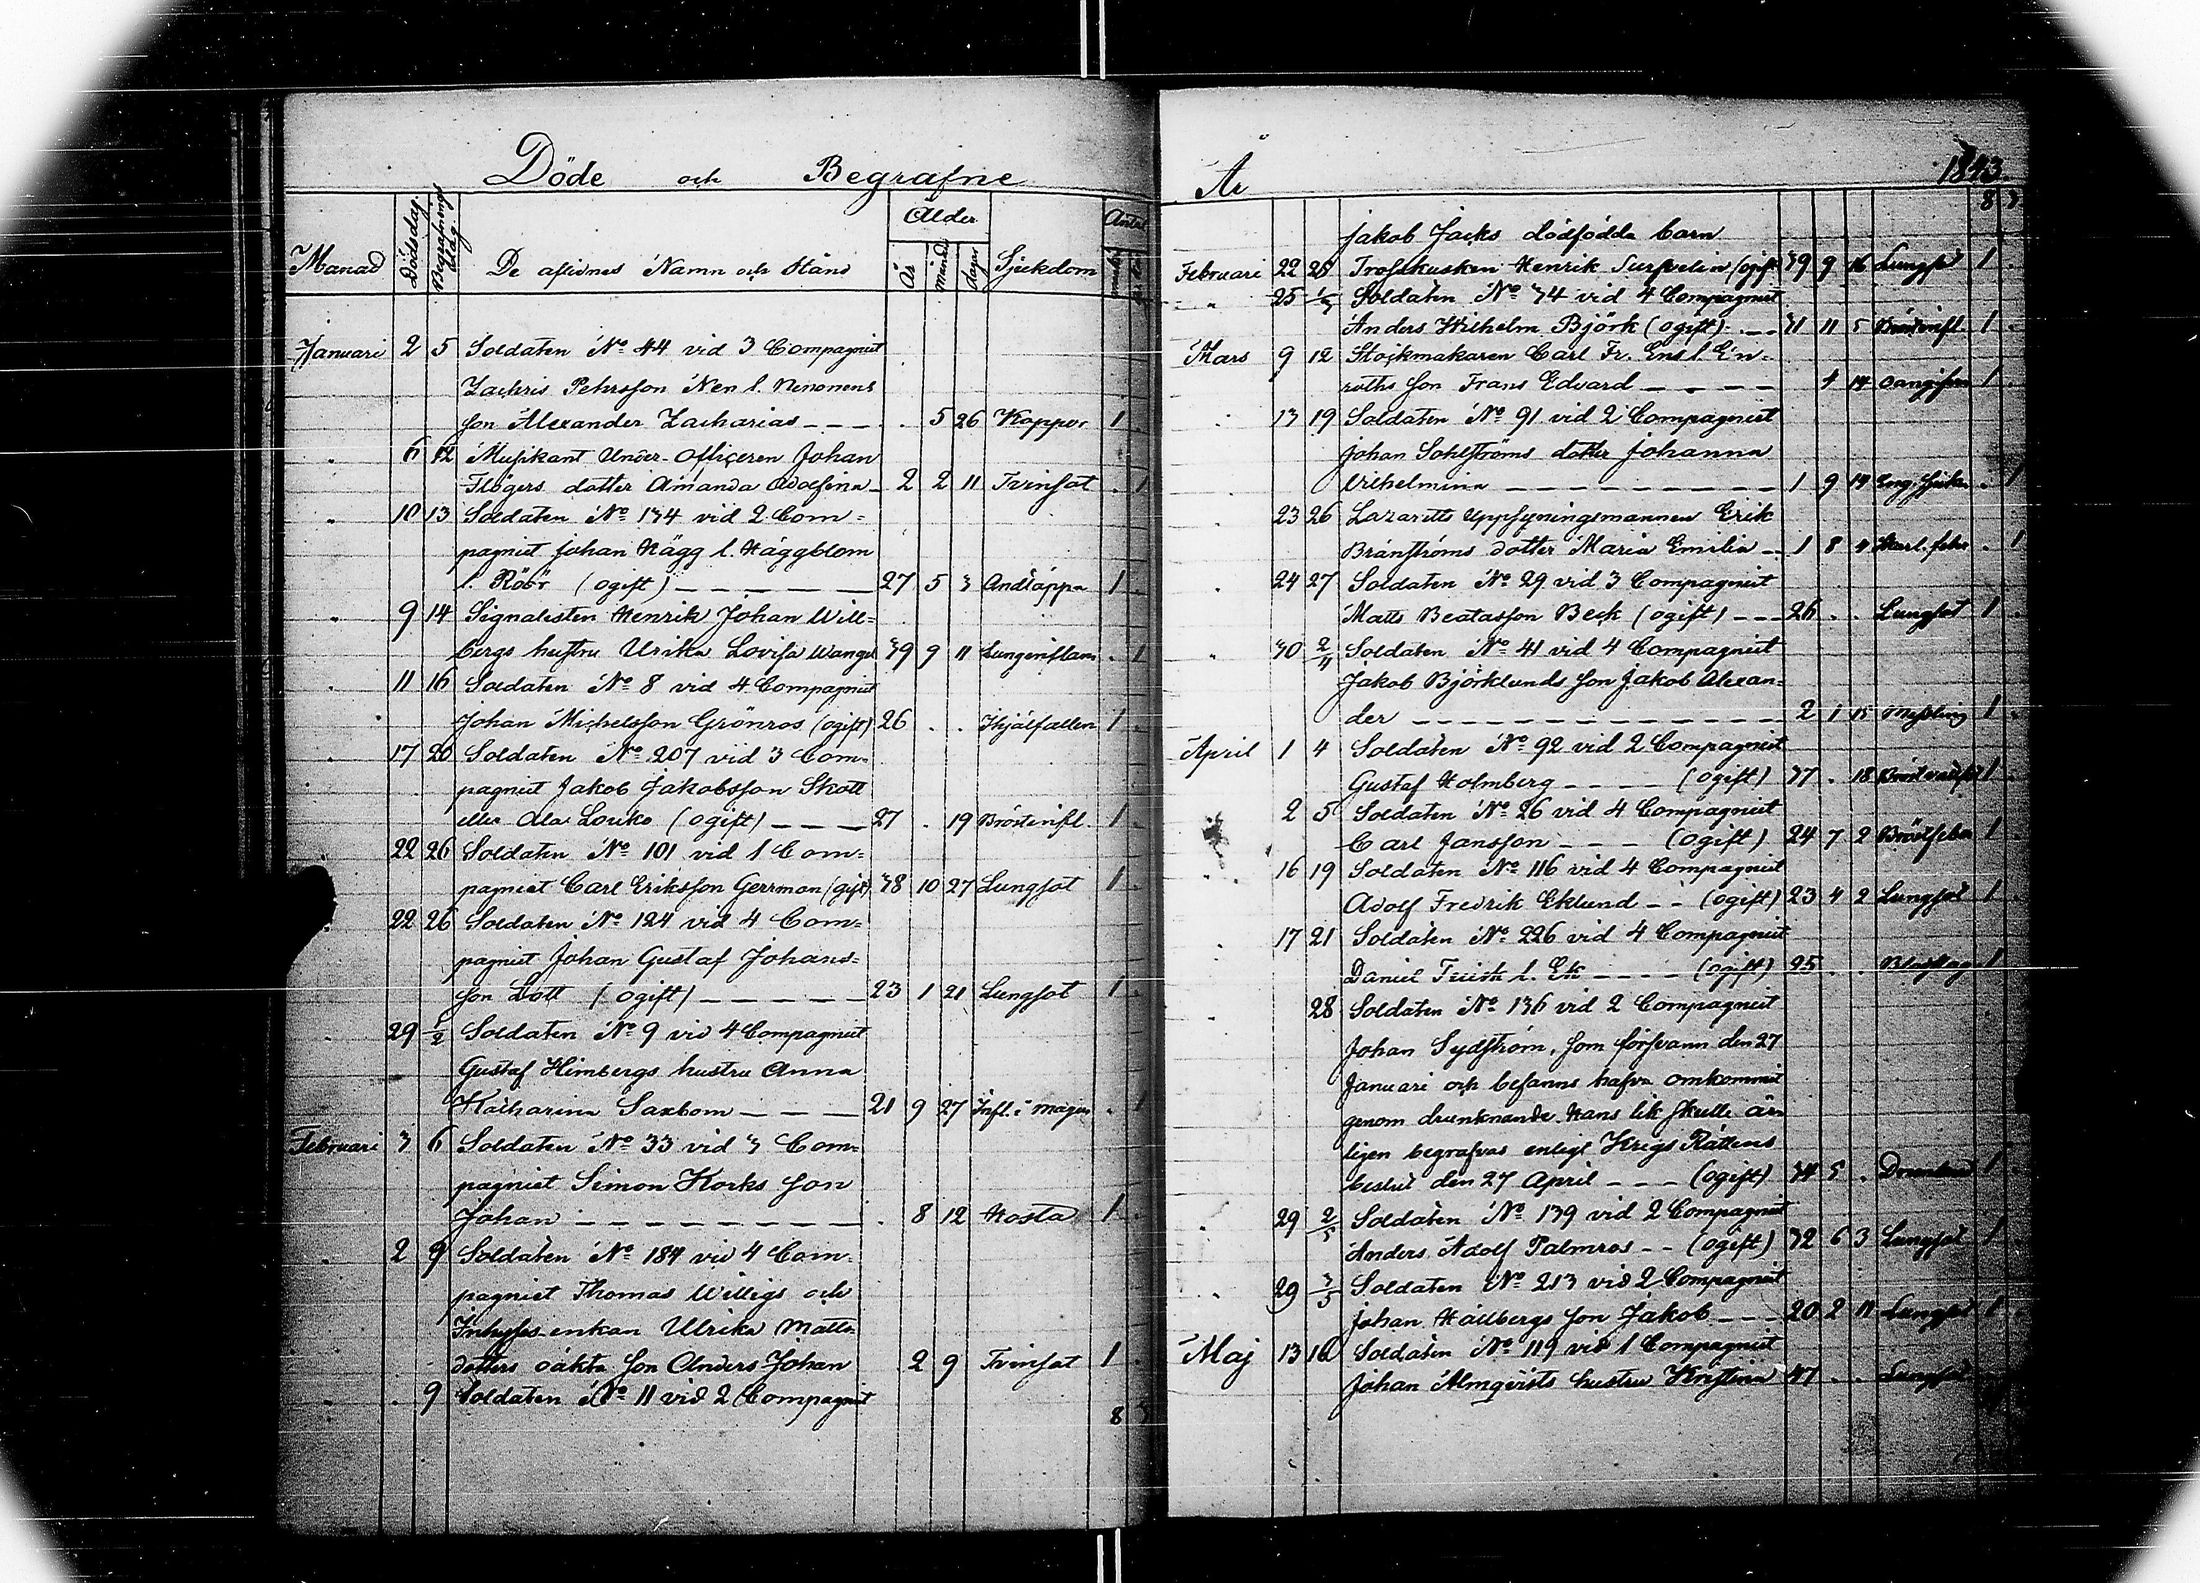 Döde och Begrafne
Månad Dödsdag Begrafnings dag De aflidnes Namn och Stånd Ålder År månad dagar Sjukdom Antal
Januari 2 5 Soldaten No 44 vid 3 Compagniet
Zachris Pehrsson Nen l. Nenonens
son Alexander Zacharias — — — . 5 26 Koppor 1
" 6 12 Musikant Under-Officeren Johan
Flögers dotter Amanda Adolfina — 2 2 11 Tvinsot . 1
" 10 13 Soldaten No 134 vid 2 Com=
pagniet Johan Hägg l. Häggblom
l. Röör (ogift) — — — — — 27 5 3 Andtäppa 1
" 9 14 Signalisten Henrik Johan Will=
bergs hustru Ulrika Lovisa Wangel 39 9 11 Lungeinflam . 1
. 11 16 Soldaten No 8 vid 4 Compagniet
Johan Michelsson Grönros (ogift) 26 . . Ihjälfallen 1
. 17 20 Soldaten No 207 vid 3 Com=
pagniet Jakob Jakobsson Skott
eller Ala Louko (ogift) — — — 27 . 19 Bröstinfl. 1
22 26 Soldaten No 101 vid 1 Com=
pagniet Carl Eriksson Gerrman (gift) 38 10 27 Lungsot 1
. 22 26 Soldaten No 124 vid 4 Com=
pagniet Johan Gustaf Johans=
son Dott (ogift) — — — — — 23 1 21 Lungsot 1
. 29 1/2 Soldaten No 9 vid 4 Compagniet
Gustaf Himbergs hustru Anna
Katharina Saxbom — — — 21 9 27 Infl. i magen . 1
Februari 3 6 Soldaten No 33 vid 3 Com=
pagniet Simon Korks son
Johan — — — — — — — . 8 12 Hosta 1
. 2 9 Soldaten No 184 vid 4 Com=
pagniet Thomas Willigs och
Inhyses-enkan Ulrika Matts=
dotters oäkta son Anders Johan 2 9 Tvinsot 1
. . 9 Soldaten No 11 vid 2 Compagniet
8 3
År 1843
8 3
Jakob Jacks dödfödda barn
Februari 22 25 Trosskusken Henrik (ogift) 39 9 16 Lungsot 1
" 25 1/3 Soldaten No 34 vid 4 Compagniet
Anders Wilhelm Björk (ogift) — 31 11 5 Bröstinfl. 1
Mars 9 12 Stockmakaren Carl Fr. Ens l. En=
roths son Frans Edvard — — — — 4 14 1
. 13 19 Soldaten No 91 vid 2 Compagniet
Johan Sohlströms dotter Johanna
Vilhelmina — — — — — — 1 9 14 Eng. sjukan . 1
. 23 26 Lazaretts Uppsyningsmannen Erik
Bränströms dotter Maria Emilia — 1 8 4 . 1
. 24 27 Soldaten No 29 vid 3 Compagniet
Matts Beatasson Beck (ogift) — — 26 . . Lungsot 1
. 30 2/4 Soldaten No 41 vid 4 Compagniet
Jakob Björklunds son Jakob Alexan=
der — — — — — — — — 2 1 15 Messling 1
April 1 4 Soldaten No 92 vid 2 Compagniet
Gustaf Holmberg — — — (ogift) 37 . 18 1
2 5 Soldaten No 26 vid 4 Compagniet
Carl Jansson — — — (ogift) 24 7 2 Bröstfeber 1
16 19 Soldaten No 116 vid 4 Compagniet
Adolf Fredrik Eklund — — (ogift) 23 4 2 Lungsot 1
. 17 21 Soldaten No 226 vid 4 Compagniet
Daniel l. Ek — — — (ogift) 25 . . 1
. 28 Soldaten No 136 vid 2 Compagniet
Johan Sydström, som försvann den 27
Januari och befanns hafva omkommit
genom drunknande. Hans lik skulle är=
ligen begrafvas enligt Krigs Rättens
beslut den 27 April — — (ogift) 34 5 . Drunknad 1
. 29 2/5 Soldaten No 139 vid 2 Compagniet
Anders Adolf Palmros — — (ogift) 32 6 3 Lungsot 1
. 29 3/5 Soldaten No 213 vid 2 Compagniet
Johan Hällbergs son Jakob — — 20 2 11 Lungsot 1
Maj 13 16 Soldaten No 119 vid 1 Compagniet
Johan Almqvists hustru Kristina 47 . . Lungsot